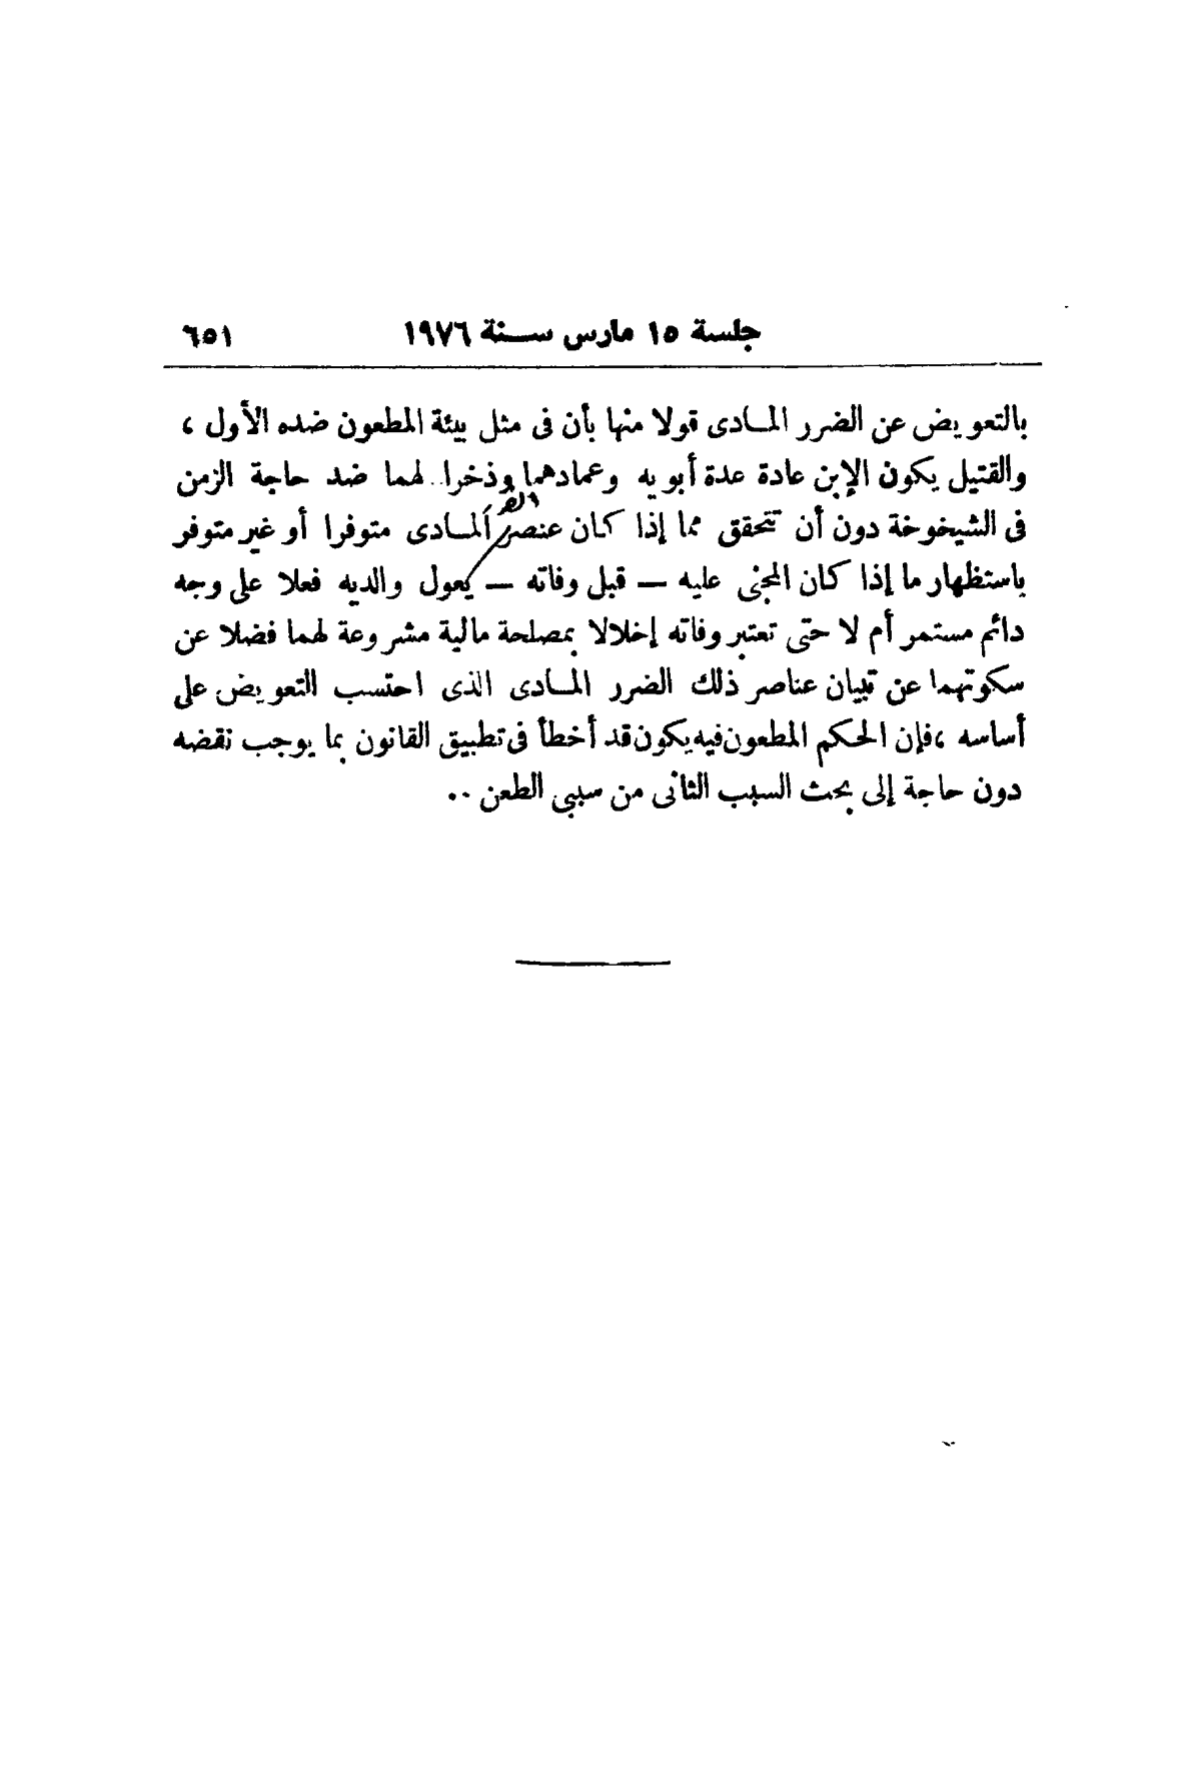 جلسة ١٥ مارس سنة ١٩٧٦ ٦٥١
بالتعويض عن الضرر المادى قولا منها بأن فى مثل بيئة المطعون ضده الأول ،
والقتيل يكون الإبن عادة عدة أبويه وعمادهما وذخرا لهما ضد حاجة الزمن
فى الشيخوخة دون أن تتحقق مما إذا كان عنصر المادى متوفرا أو غير متوفر
باستظهار ما إذا كان المجنى عليه — قبل وفاته — يعول والديه فعلا على وجه
دائم مستمر أم لا حتى تعتبر وفاته إخلالا بمصلحة مالية مشروعة لهما فضلا عن
سكوتهما عن تبيان عناصر ذلك الضرر المادى الذى احتسب التعويض على
أساسه ، فإن الحكم المطعون فيه يكون قد أخطأ فى تطبيق القانون بما يوجب نقضه
دون حاجة إلى بحث السبب الثانى من سببى الطعن ..